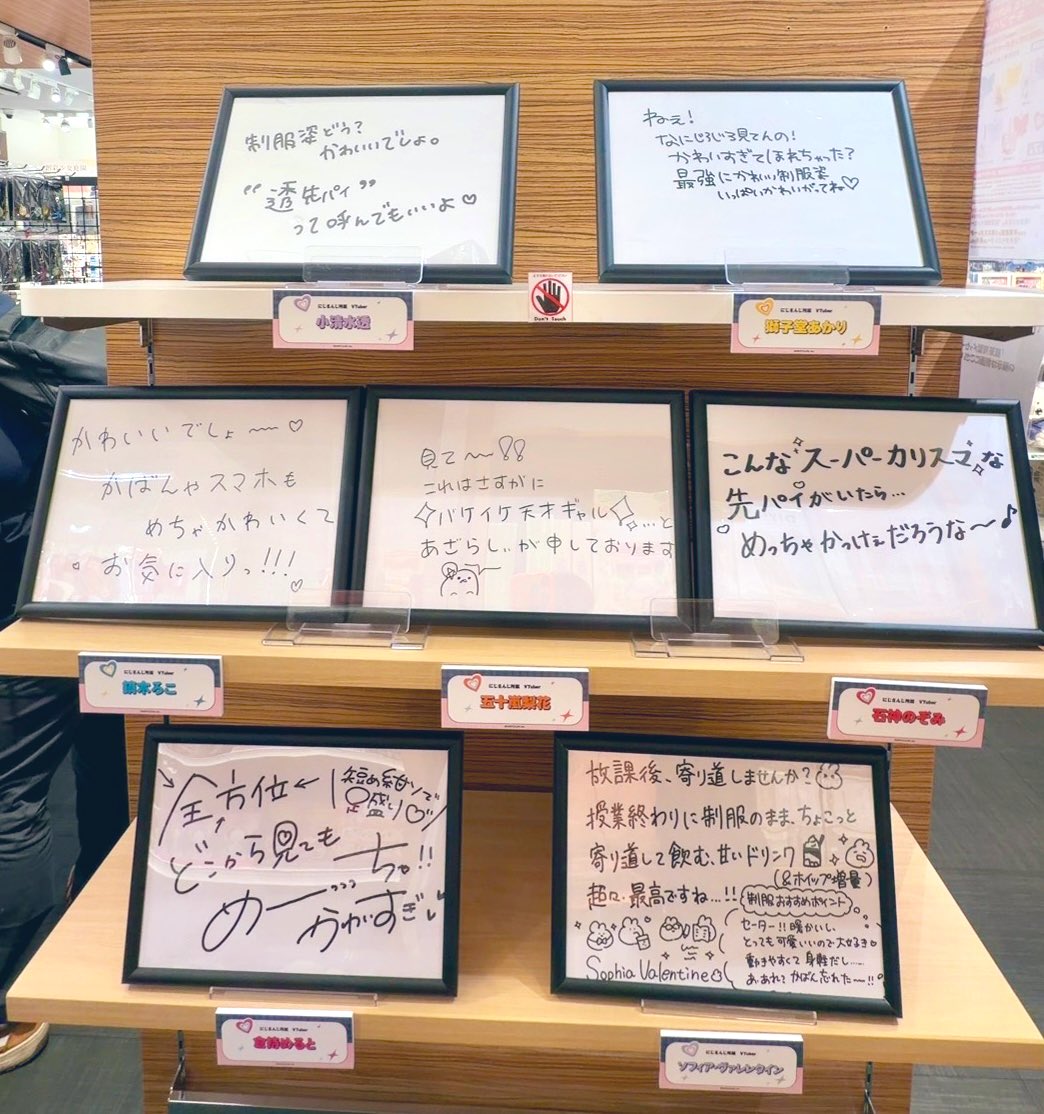 制服姿どう?
かわいいでしょ。
"透先パイ"
って呼んでもいいよ♡
ねぇ!
なにじろじろ見てんの!
かわいすぎてほれちゃった?
最強にかわいい制服姿
いっぱいかわいがってね♡
Don't Touch
にじさんじ所属 VTuber
小清水透
にじさんじ所属 VTuber
獅子堂あかり
かわいいでしょ〜〜♡
かばんやスマホも
めちゃかわいくて
お気に入りっ!!!♡
見て〜!!
これはさすがに
✧バケイケ天才ギャル✧…と
あざらしぃが申しております
こんなスーパーカリスマな
先パイがいたら…
めっちゃかっけぇだろうな〜♪
にじさんじ所属 VTuber
鏑木ろこ
にじさんじ所属 VTuber
五十嵐梨花
にじさんじ所属 VTuber
石神のぞみ
全方位
短め紺ソで
盛り♡ッ
どこから見ても
めーーーちゃ!!
かわすぎ
放課後、寄り道しませんか?
授業終わりに制服のまま、ちょこっと
寄り道して飲む、甘いドリンク
(&ホイップ増量)
超々最高ですね…!!
制服おすすめポイント
セーター!!暖かいし、
とっても可愛いいので大好き♡
動きやすくて身軽だし……
あ、あれ?かばん忘れた〜!!
Sophia Valentine
にじさんじ所属 VTuber
倉持めると
にじさんじ所属 VTuber
ソフィア・ヴァレンタイン